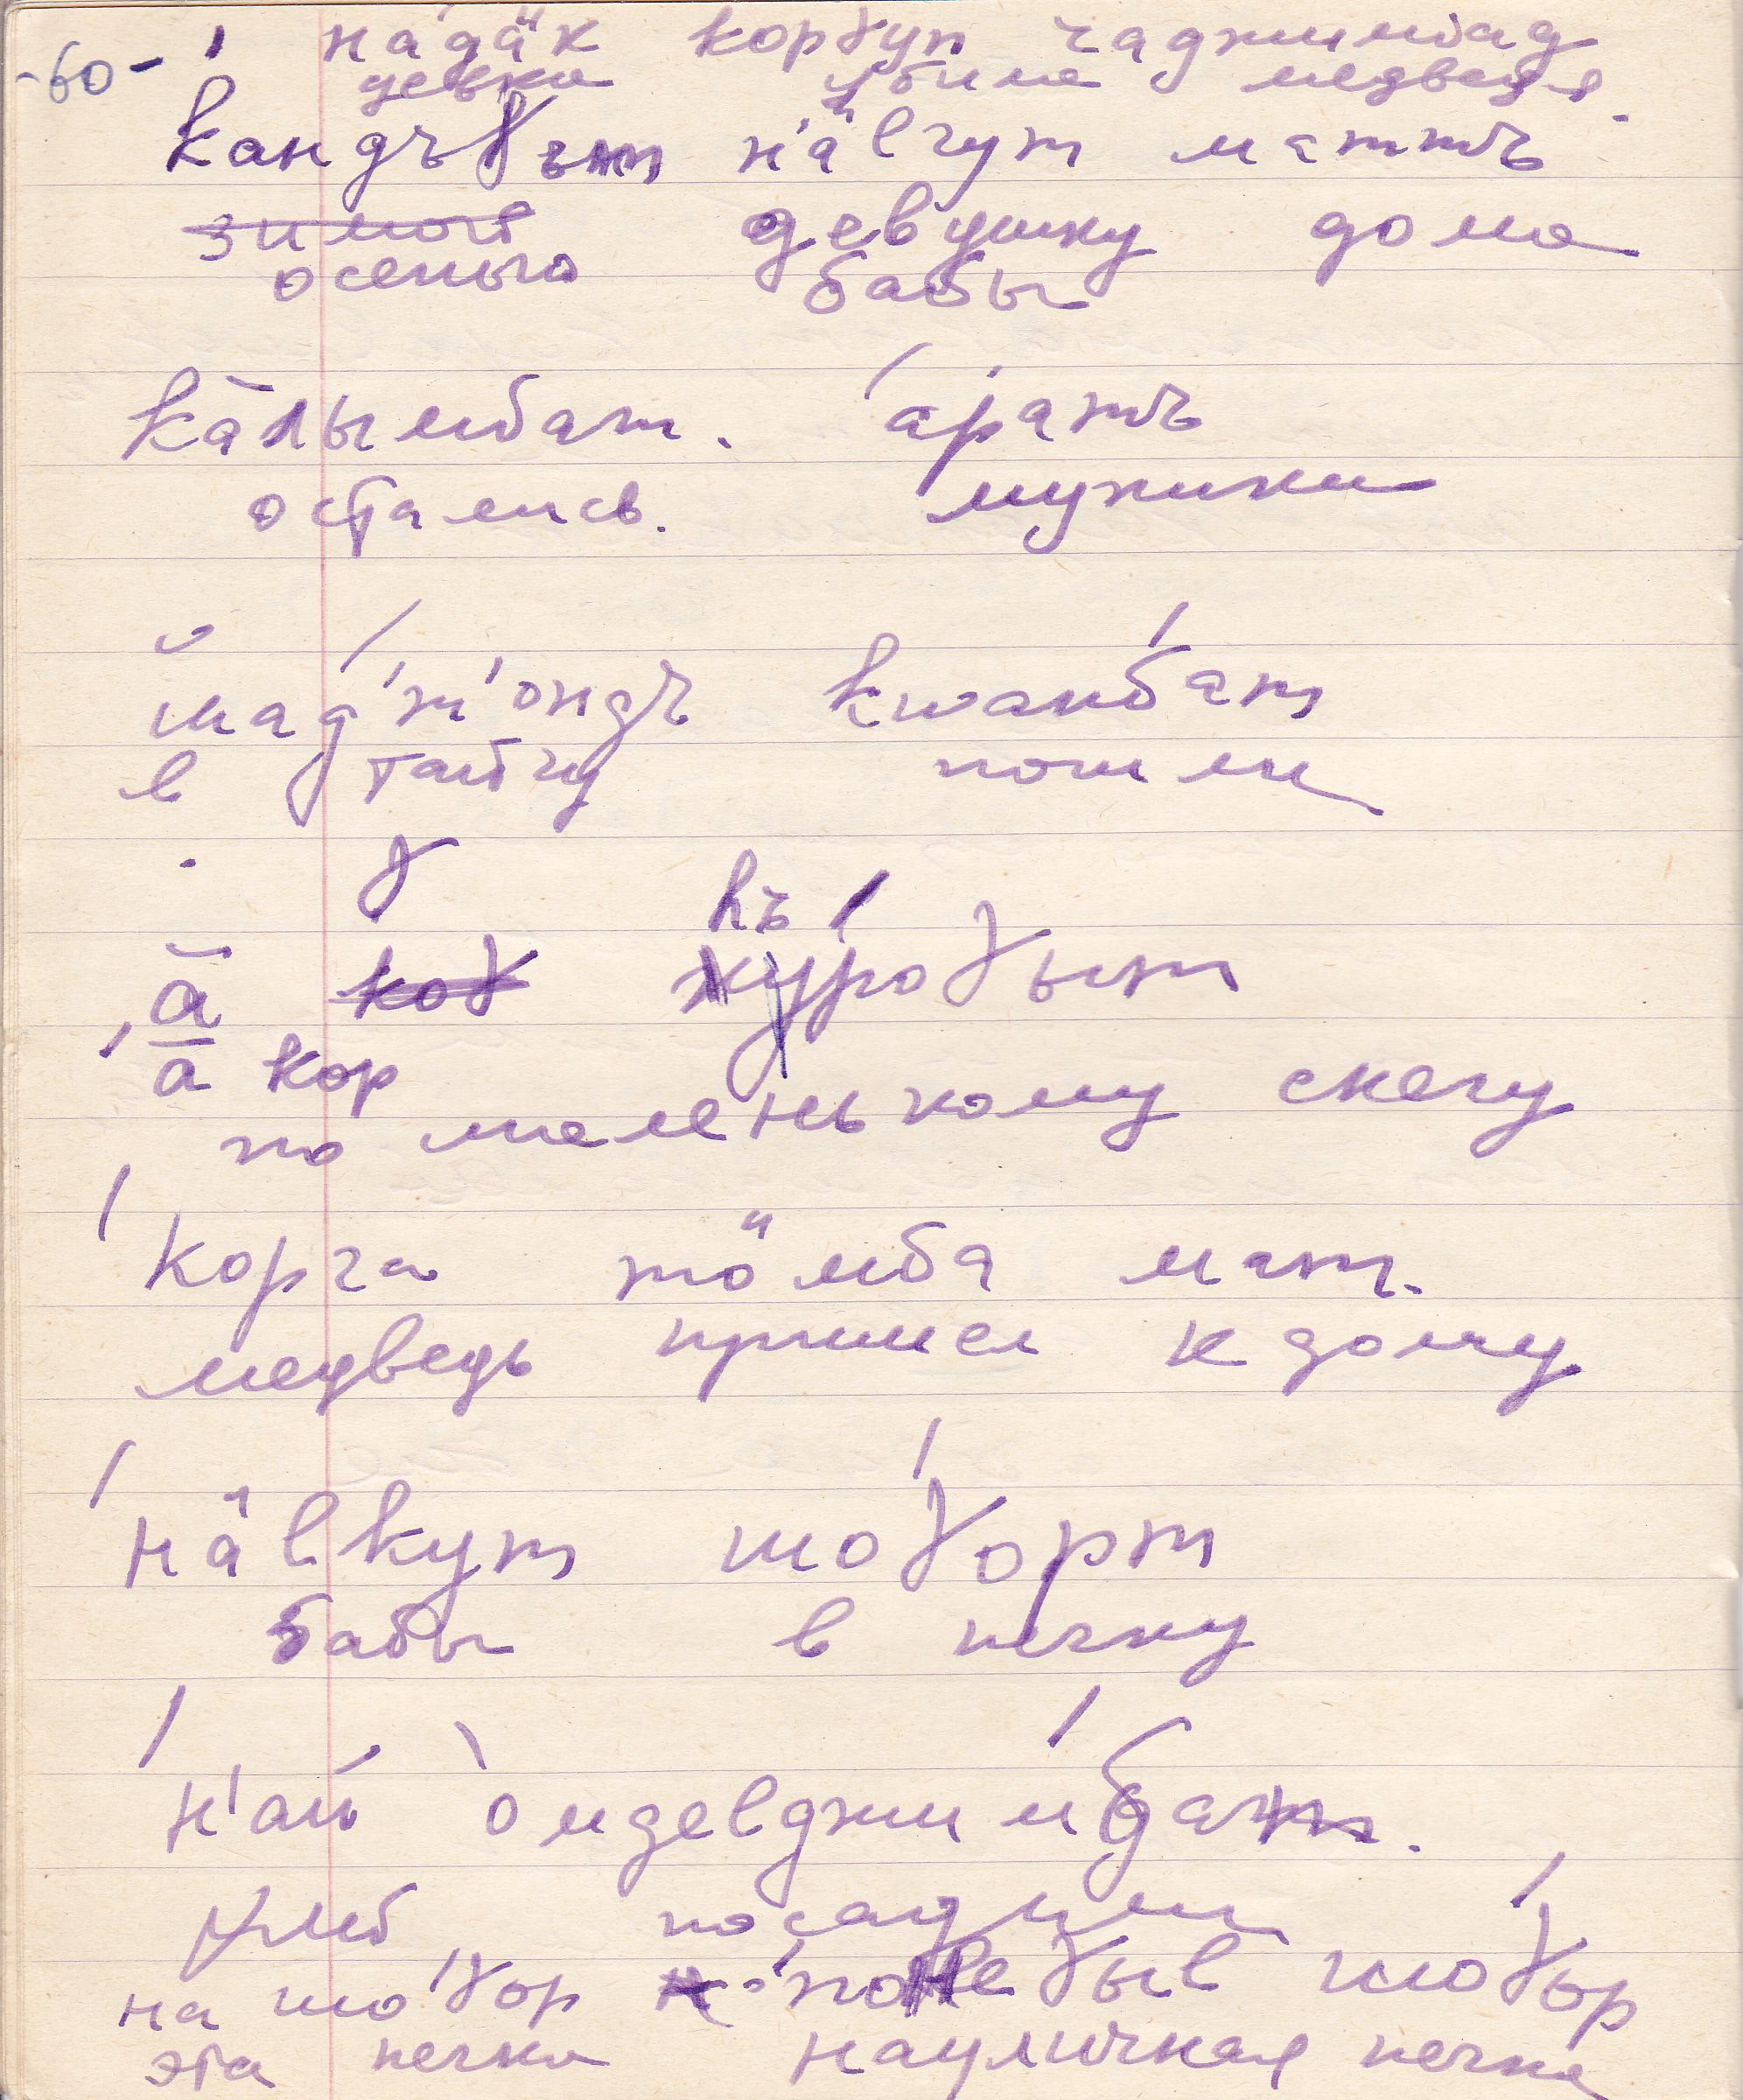 -60- на́дӓк корɣуп чаджимбад
девка убила медведя.
кандъɣът нӓлгут маттъ
зимой девушку дома
осенью бабы
ка̄лымбат. араттъ
остались. мужики
мад'т'ондъ кwанбат
в тайгу пошли
ɣ
къ
а̄ коɣ курооɣыт
а кор
по маленькому снегу
корга тӧмба мат.
медведь пришел к дому
нӓлкут шоɣорт
бабы в печку
н'ай омделджимбат.
хлеб посадили
на шоɣор поնеɣыл шоɣор
эта печка науличная печка